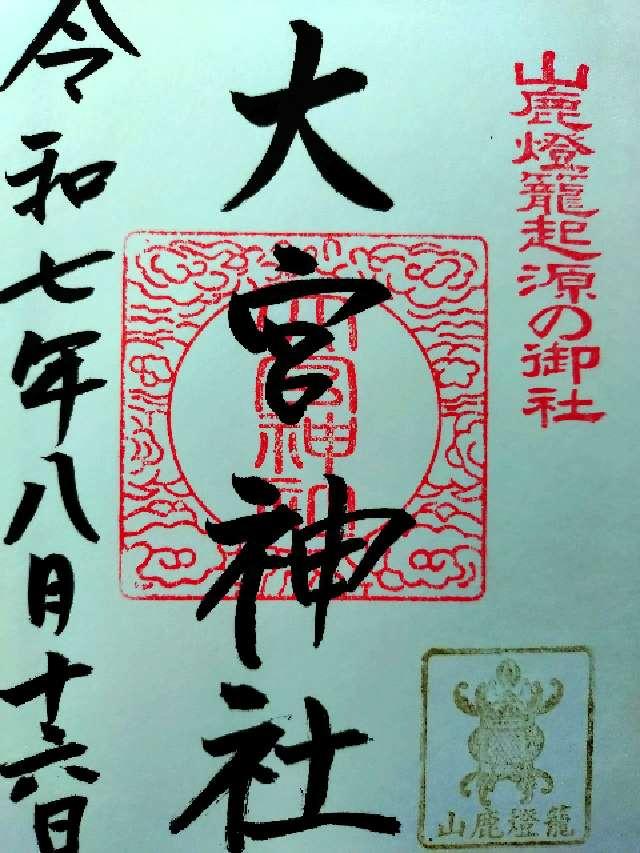 山鹿燈籠起源の御社
大宮神社
令和七年八月十六日
山鹿燈籠